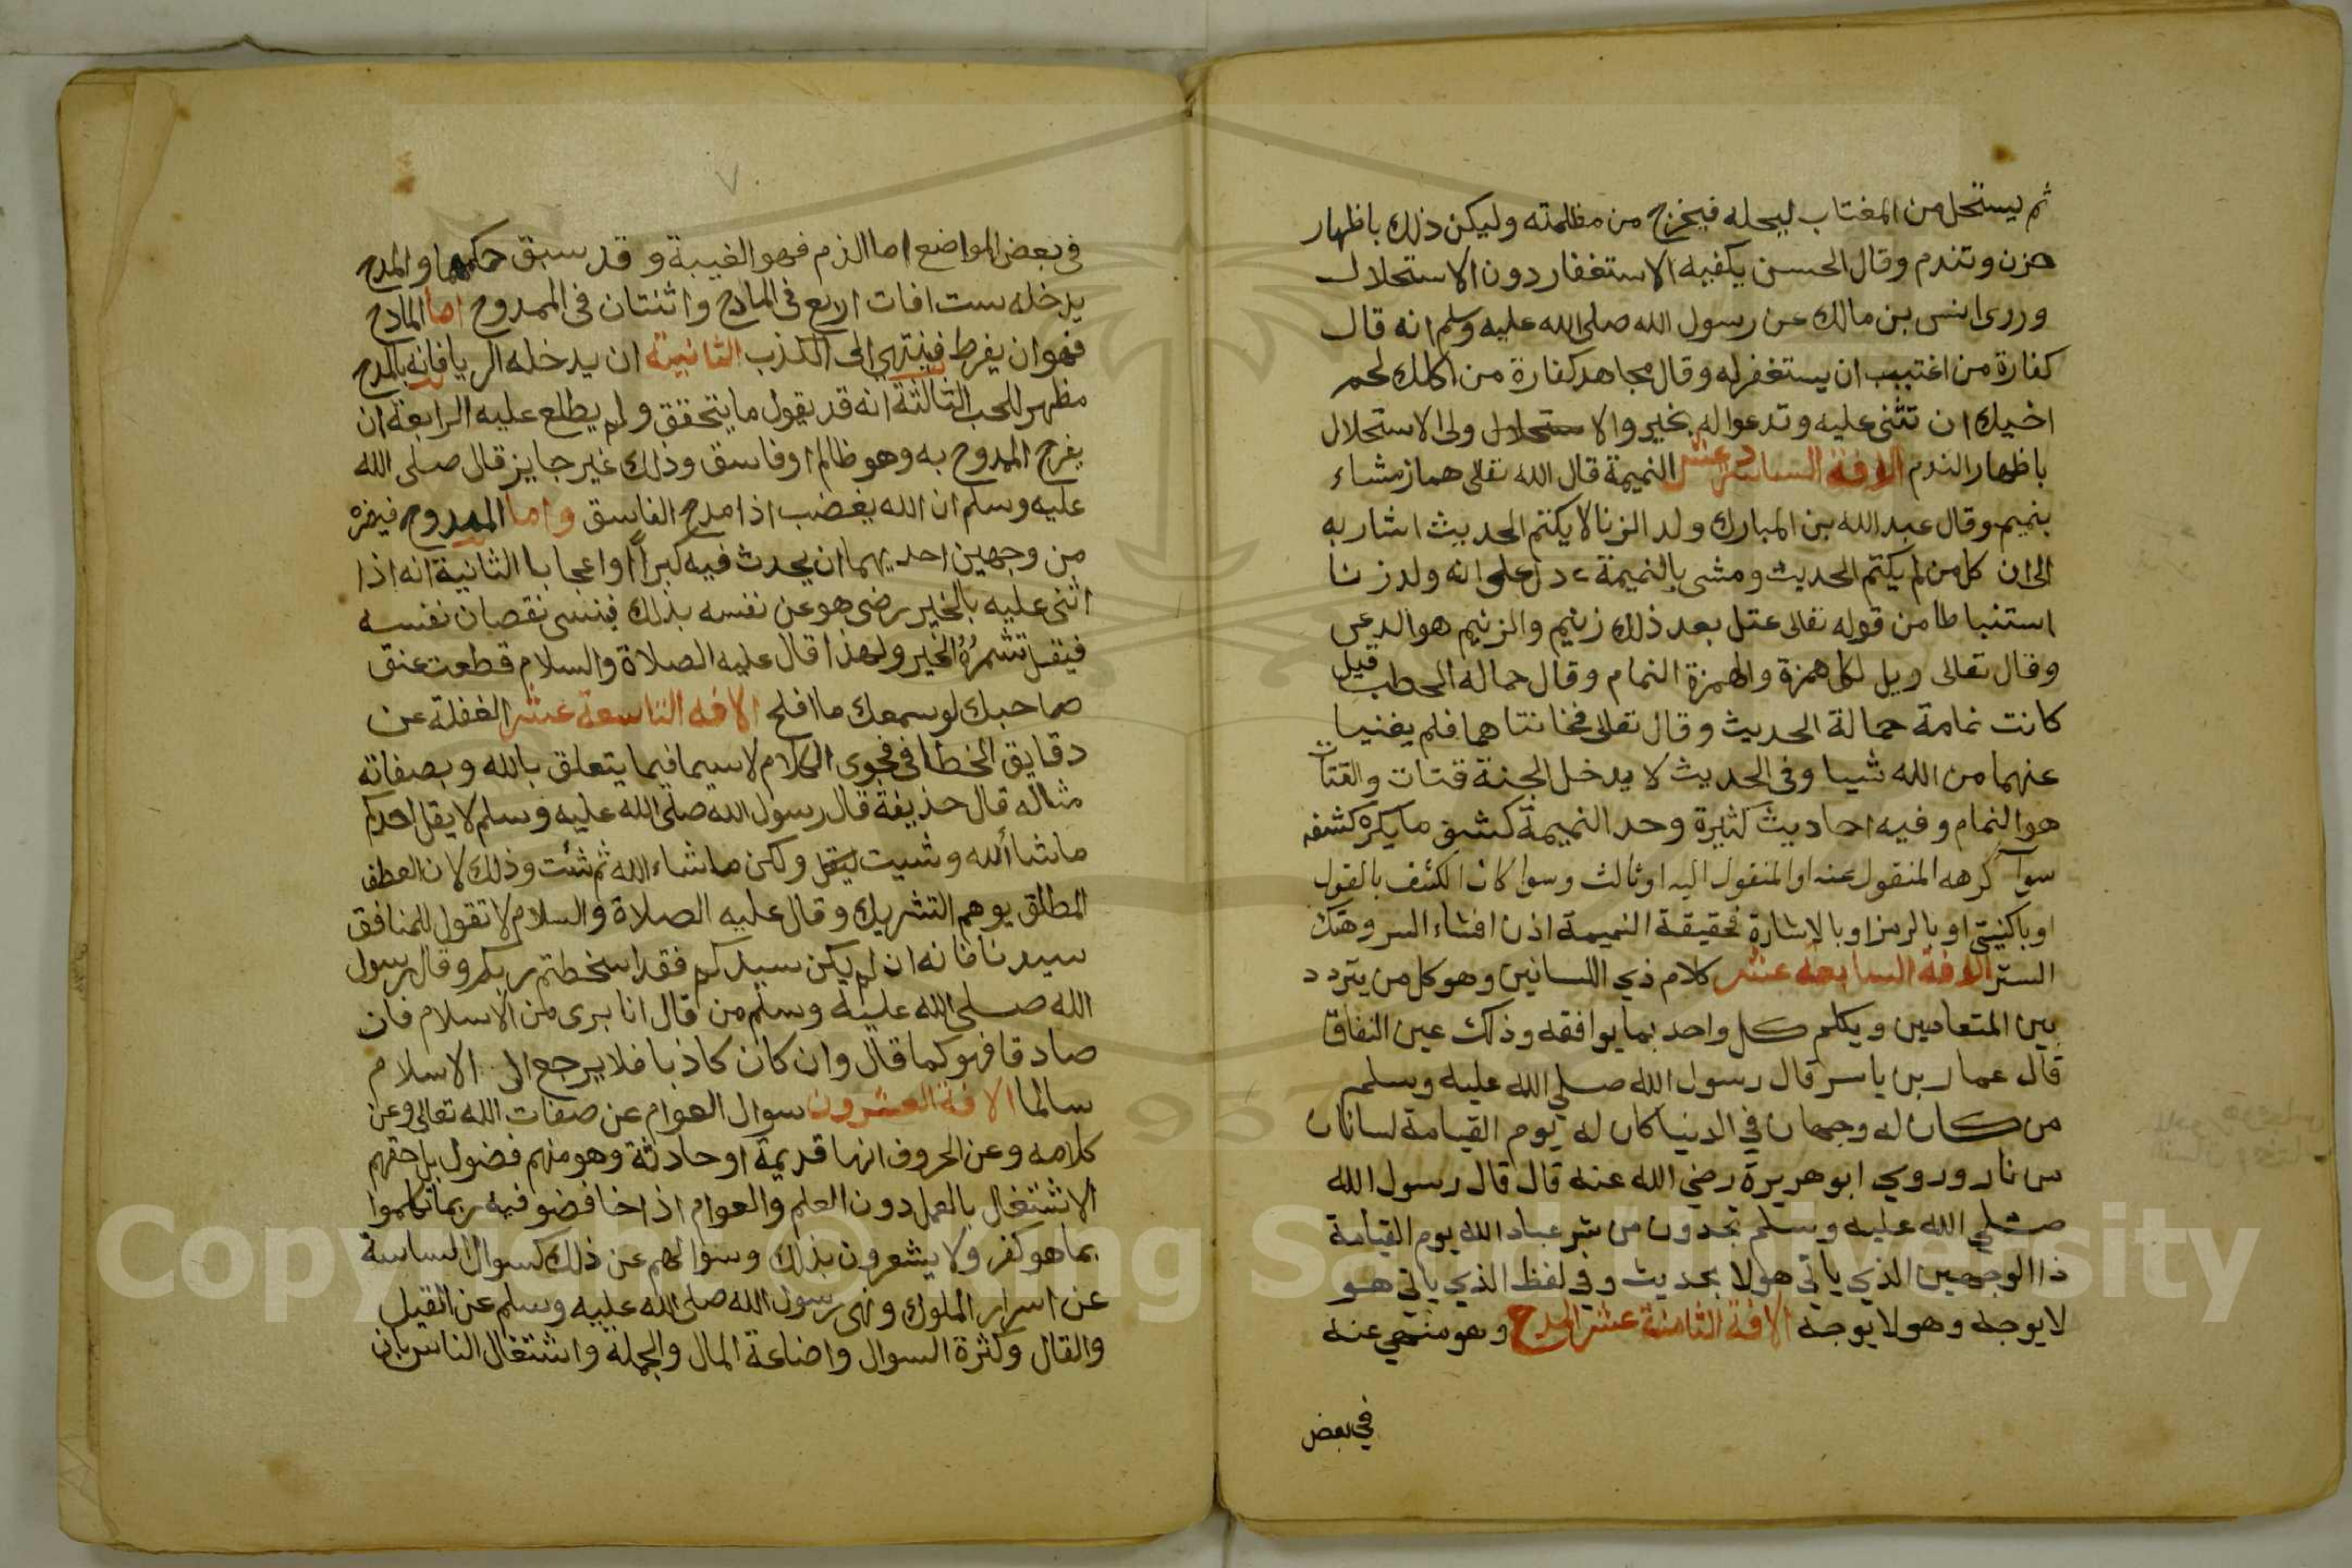 ثم يستحل من المغتاب ليحله فيخرج من مظلمته وليكن ذلك باظهار
حزن وتندم وقال الحسن يكفيه الاستغفار دون الاستحلال
وروى انس بن مالك عن رسول الله صلى الله عليه وسلم انه قال
كفارة من اغتيب ان يستغفر له وقال مجاهد كفارة من اكلك لحم
اخيك ان تثنى عليه وتدعوا له بخير والا ولى الاستحلال
باظهار الندم الافة السادسة عشر النميمة قال الله تعالى هماز مشاء
بنميم وقال عبد الله بن المبارك ولد الزنا لا يكتم الحديث اشار به
الى ان كل من لم يكتم الحديث ومشى بالنميمة دل على انه ولد زنا
استنباطا من قوله تعالى عتل بعد ذلك زنيم والزنيم هو الدعى
وقال تعالى ويل لكل همزة والهمزة النمام وقال حمالة الحطب قيل
كانت نمامة حمالة الحديث وقال تعالى فخانتاهما فلم يغنيا
عنهما من الله شيا وفى الحديث لا يدخل الجنة قتات والقتات
هو النمام وفيه احاديث كثيرة وحد النميمة كشف ما يكره كشفه
سوآ كرهه المنقول عنه او المنقول اليه او ثالث وسوا كان الكشف بالقول
او بالكتبتى او بالرمز او بالاشارة فحقيقة النميمة اذن افشاء السر وهتك
الستر الافة السابعة عشر كلام ذي اللسانين وهو كل من يتردد
بين المتعاديين ويكلم كل واحد بما يوافقه وذلك عين النفاق
قال عمار بن ياسر قال رسول الله صلي الله عليه وسلم
من كان له وجهان في الدنيا كان له يوم القيامة لسانان
من نار وروي ابو هريرة رضي الله عنه قال قال رسول الله
صلي الله عليه وسلم تجدون من شر عباد الله يوم القيامة
ذا الوجهين الذي ياتي هولا بحديث وفي لفظ الذي ياتي هو
لا بوجه وهولا بوجه الافة الثامنة عشر المدح وهو منهي عنه
في بعض
٧
فى بعض المواضع اما الذم فهو الغيبة وقد سبق حكمها والمدح
يدخله ست افات اربع فى المادح واثنتان فى الممدوح اما المادح
فهو ان يفرط فينتهي الى الكذب الثانية ان يدخله الريا فانه بالمدح
مظهر للحب الثالثة انه قد يقول ما يتحقق ولم يطلع عليه الرابعة ان
يفرح الممدوح به وهو ظالم او فاسق وذلك غير جايز قال صلى الله
عليه وسلم ان الله يغضب اذا مدح الفاسق واما الممدوح فيضره
من وجهين احديهما ان يحدث فيه كبرًا او اعجابا الثانية انه اذا
اثنى عليه بالخير رضى هو عن نفسه بذلك فينسى نقصان نفسه
فيقل تشمره للخير ولهذا قال عليه الصلاة والسلام قطعت عنق
صاحبك لو سمعك ما افلح الافه التاسعة عشر الغفلة عن
دقايق الخطا فى فحوى الكلام لا سيما فيما يتعلق بالله وبصفاته
مثاله قال حذيفة قال رسول الله صلى الله عليه وسلم لا يقل احدكم
ماشا ألله وشيت ليقل ولكن ماشاء الله ثم شئت وذلك لان العطف
المطلق يوهم التشريك وقال عليه الصلاة والسلام لا تقول للمنافق
سيدنا فانه ان لم يكن سيدكم فقد اسخطتم ربكم وقال رسول
الله صلى الله عليه وسلم من قال انا برى من الاسلام فان
صادقا فهو كما قال وان كان كاذبا فلا يرجع الى الاسلام
سالما الافة العشرون سوال العوام عن صفات الله تعالى وعن
كلامه وعن الحروف انها قديمة او حادثة وهو منهم فضول بل حقهم
الاشتغال بالعمل دون العلم والعوام اذا خاضو فيه ربما تكلموا
بما هو كفر ولا يشعرون بذلك وسوالهم عن ذلك كسوال الساسة
عن اسرار الملوك ونهى رسول الله صلى الله عليه وسلم عن القيل
والقال وكثرة السوال واضاعة المال والجملة واشتغال الناس بان
Copyright © King Saud University
957